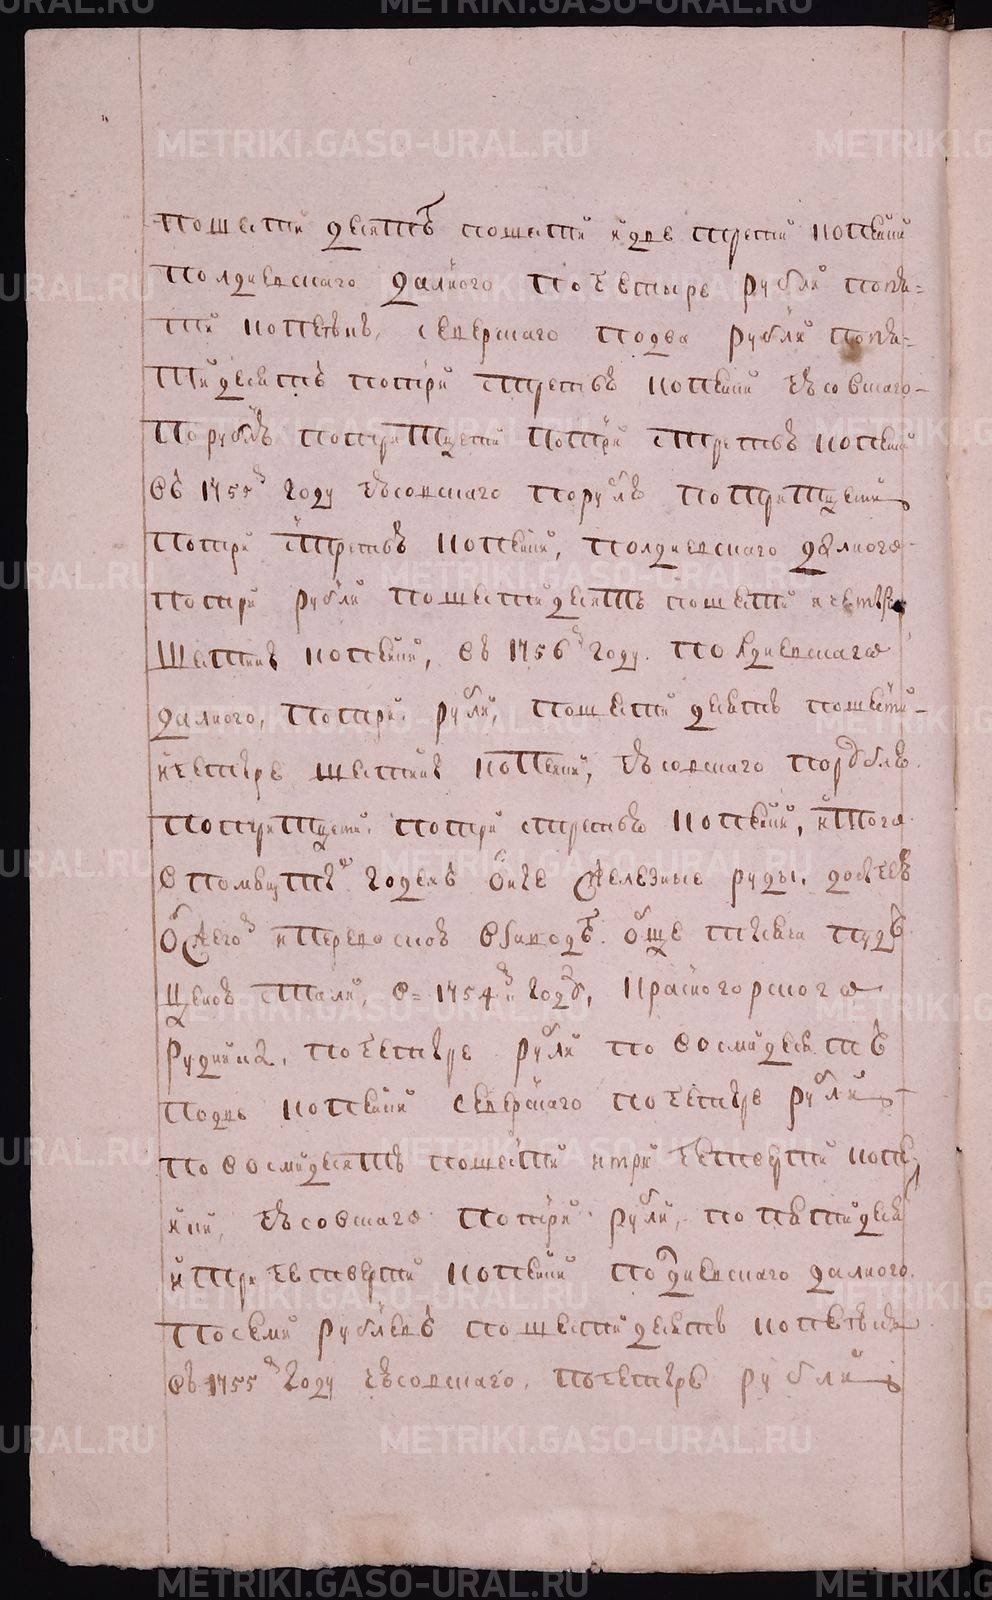 пошести десятъ пошести идве трети копеики
Полдневскаго далного по четыре рубли попя=
ти копеекъ, северскаго подва рубли попя=
тидесятъ потри третьвъ копеики чюсовскаго
Порублю потритцети потри третьвъ копеики
въ 1755м году чюсовскаго порублю потритцети
потри третьвъ копеики, полдневскаго далного
потри рубли пошестидесятъ пошести ичетыре
шестикъ копеики, въ 1756м году. полдневскаго
далного, потри, рубли, пошести десятъ пошести
ичетыре шестикъ копеики, чюсовскаго порублю
потритцети, потри третьвъ копеики, итого
в помянутыхъ годехъ оные железные руды, добычею
обжегомъ иперевоскою взаводъ. обще тысяча пудъ
ценою стали, в= 1754м году, Красногорского
рудника, почетыре рубли по восмидесятъ
подве копеики северскаго почетыре рубли
по восмидесятъ пошести итри четверти копе
ики, чюсовскаго потри рубли, по пятидеся
итри четверти копеики полдневскаго далного.
посеми рублевъ пошестидесятъ копеекъ
въ 1755м году чюсовскаго, почетыре рубли
METRIKI.GASO-URAL.RU